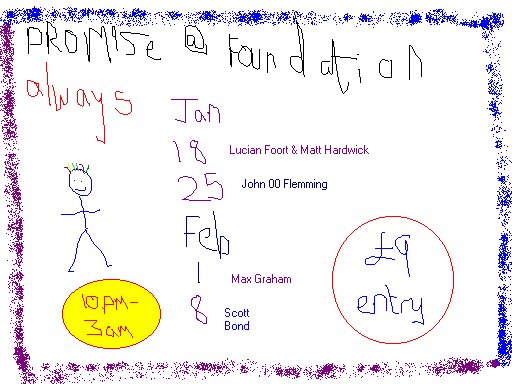 PROMISE @ Foundation
always
Jan
18 Lucian Foort & Matt Hardwick
25 John 00 Flemming
Feb
1 Max Graham
8 Scott
Bond
10PM-
3am
£9
entry